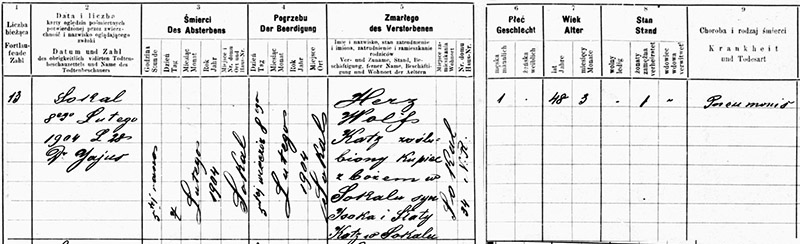 1
2
3
4
5
6
7
8
9
Liczba bieżąca
Fortlaufende Zahl
Data i liczba
karty oględzin pośmiertnych potwierdzonej przez zwierzchność i nazwisko oglądającego zwłoki
Datum und Zahl
des obrigkeitlich vidirten Todtenbeschauzettels und Name des Todtenbeschauers
Śmierci
Des Absterbens
Godzina Stunde
Dzień Tag
Miesiąc Monat
Rok Jahr
Pogrzebu
Der Beerdigung
Godzina Stunde
Dzień Tag
Miesiąc Monat
Rok Jahr
Miejsce Ort
Zmarłego
Des Verstorbenen
Imię i nazwisko, stan zatrudnienie i imiona, zatrudnienie i zamieszkanie rodziców
Ver- und Zuname, Stand, Beschäftigung, ferner Name, Beschäftigung und Wohnort der Aeltern
Miejsce zamieszkania Wohnort
Nr. domu Haus-Nr.
Płeć
Geschlecht
męska männlich
żeńska weiblich
Wiek
Alter
lat Jahre
miesięcy Monate
Stan
Stand
wolny ledig
żonaty zamężna verheiratet
wdowiec wdowa verwitwet
Choroba i rodzaj śmierci
Krankheit
und Todesart
13
Sokal
8ego Lutego
1904 L
Dr
5tej
7
Lutego
1904
Sokal
5tej
8go
Lutego
1904
Sokal
Herz
Wolf
Katz zaślu
biony kupiec
zbożem w
Sokalu syn
Icoka i Złaty
Katz w Sokalu
Sokal
34
1
48
3
1
"
Pneumonis